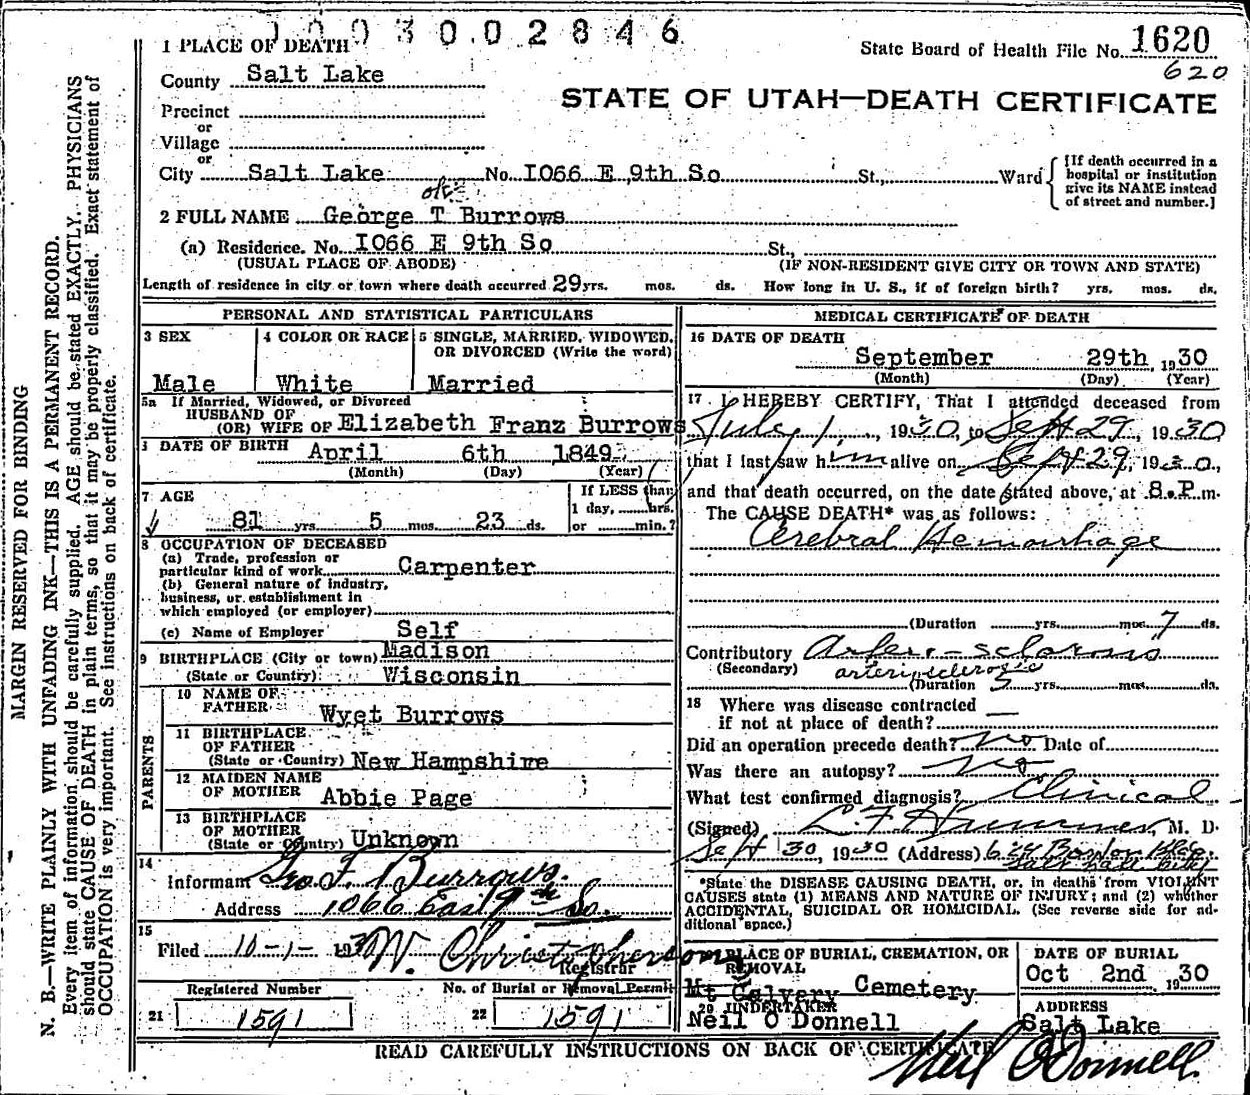 003002846
1 PLACE OF DEATH
State Board of Health File No. 1620
620
County Salt Lake
STATE OF UTAH—DEATH CERTIFICATE
Precinct
or
Village
or
City Salt Lake No. 1066 E 9th So St., Ward
[If death occurred in a hospital or institution give its NAME instead of street and number.]
2 FULL NAME George T Burrows
(a) Residence. No. 1066 E 9th So St.,
(USUAL PLACE OF ABODE) (IF NON-RESIDENT GIVE CITY OR TOWN AND STATE)
Length of residence in city or town where death occurred 29 yrs. mos. ds. How long in U. S., if of foreign birth? yrs. mos. ds.
PERSONAL AND STATISTICAL PARTICULARS
3 SEX
Male
4 COLOR OR RACE
White
5 SINGLE, MARRIED, WIDOWED,
OR DIVORCED (Write the word)
Married
5a If Married, Widowed, or Divorced
HUSBAND OF
(OR) WIFE OF Elizabeth Franz Burrows
DATE OF BIRTH April 6th 1849
(Month) (Day) (Year)
7 AGE
81 yrs 5 mos. 23 ds.
If LESS than
1 day, hrs.
or min.?
8 OCCUPATION OF DECEASED
(a) Trade, profession or
particular kind of work Carpenter
(b) General nature of industry,
business, or establishment in
which employed (or employer)
(c) Name of Employer Self
9 BIRTHPLACE (City or town) Madison
(State or Country) Wisconsin
PARENTS
10 NAME OF
FATHER Wyet Burrows
11 BIRTHPLACE
OF FATHER
(State or Country) New Hampshire
12 MAIDEN NAME
OF MOTHER Abbie Page
13 BIRTHPLACE
OF MOTHER
(State or Country) Unknown
14
Informant Geo. F. Burrows.
Address 1066 East 9th So.
15
Filed 10-1- 1930 W. Christophersom
Registrar
Registered Number
21 1591
No. of Burial or Removal Permit
22 1591
MEDICAL CERTIFICATE OF DEATH
16 DATE OF DEATH
September 29th, 1930
(Month) (Day) (Year)
17 I HEREBY CERTIFY, That I attended deceased from
July 1, 1930, to Sept 29, 1930
that I last saw him alive on Sept 29, 1930,
and that death occurred, on the date stated above, at 8.P.m.
The CAUSE DEATH* was as follows:
Cerebral Hemorrhage
(Duration yrs. mos. 7 ds.
Contributory Arteri-sclarosis
(Secondary) arteriosclerosis
(Duration yrs. mos. ds.
18 Where was disease contracted
if not at place of death? —
Did an operation precede death? No Date of
Was there an autopsy? No
What test confirmed diagnosis? Clinical
(Signed) L F Hummer, M. D.
Sept 30, 1930 (Address) Boston Bldg.
*State the DISEASE CAUSING DEATH, or, in deaths from VIOLENT
CAUSES state (1) MEANS AND NATURE OF INJURY; and (2) whether
ACCIDENTAL, SUICIDAL OR HOMICIDAL. (See reverse side for ad-
ditional space.)
PLACE OF BURIAL, CREMATION, OR
REMOVAL
Mt Calvery Cemetery
DATE OF BURIAL
Oct 2nd 1930
20 UNDERTAKER
Neil O Donnell
ADDRESS
Salt Lake
READ CAREFULLY INSTRUCTIONS ON BACK OF CERTIFICATE
Neil O'Donnell.
MARGIN RESERVED FOR BINDING
N. B.—WRITE PLAINLY WITH UNFADING INK—THIS IS A PERMANENT RECORD.
Every item of information should be carefully supplied. AGE should be stated EXACTLY. PHYSICIANS
should state CAUSE OF DEATH in plain terms, so that it may be properly classified. Exact statement of
OCCUPATION is very important. See instructions on back of certificate.